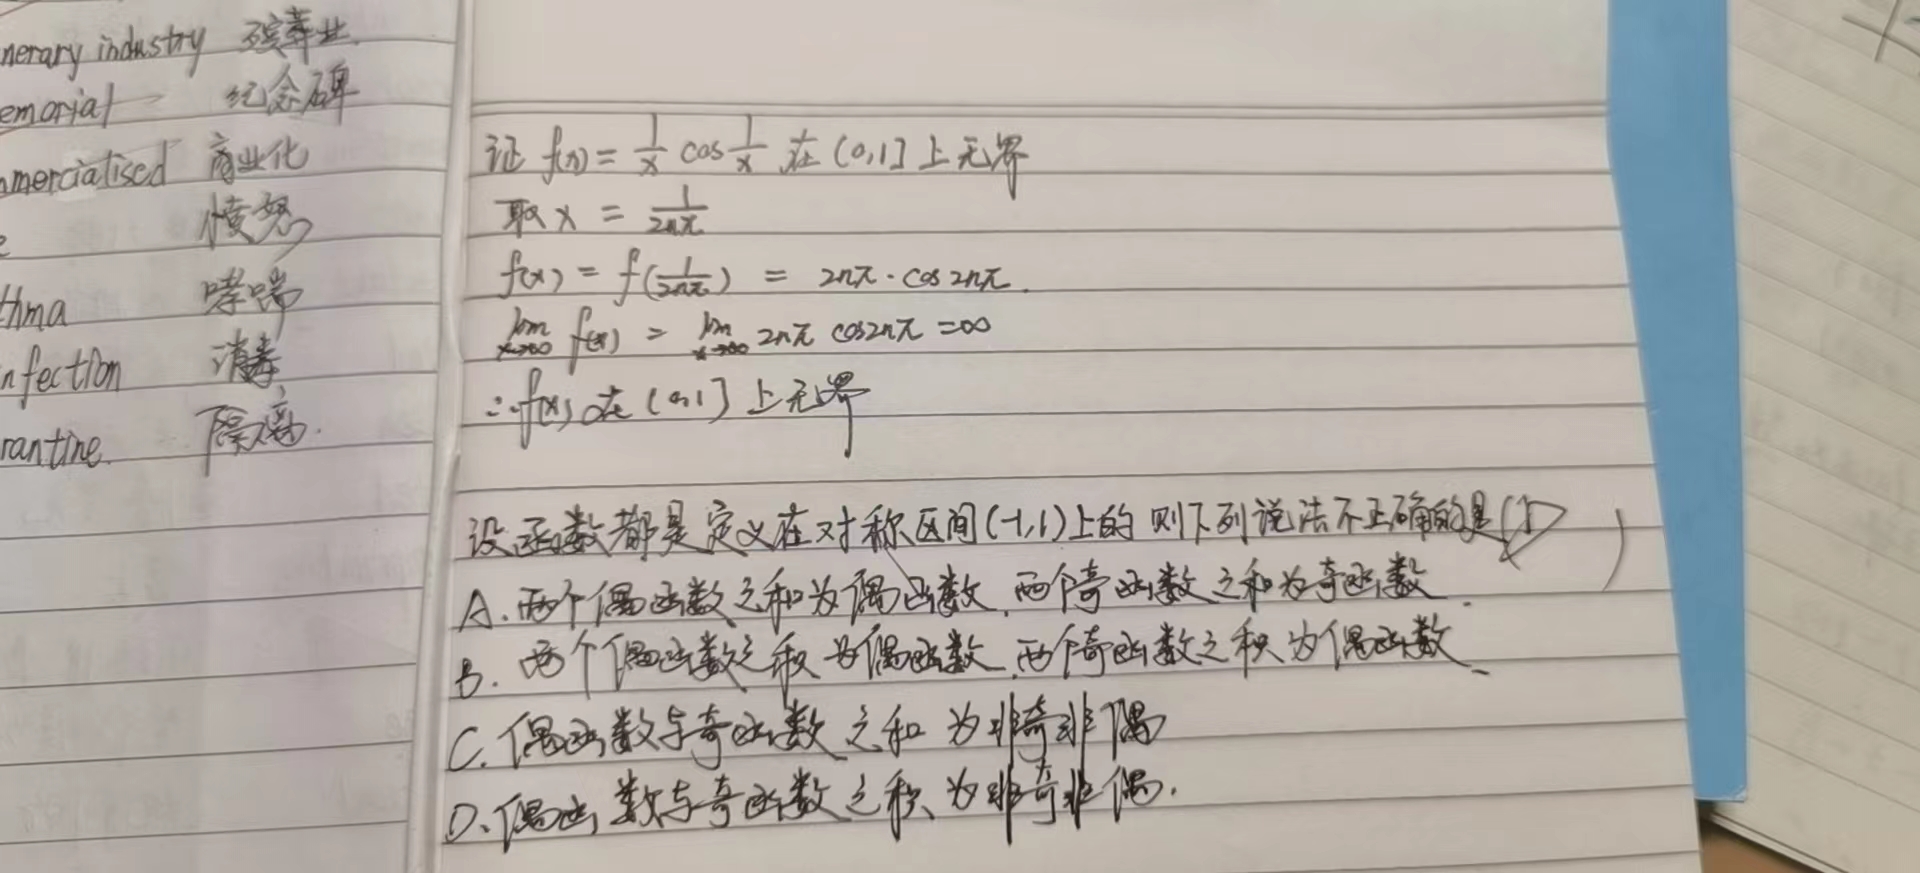 nerary industry 殡葬业
emorial 纪念碑
mmercialised 商业化
e 愤怒
thma 哮喘
nfection 消毒
rantine 隔离
证 f(x) = 1/x cos 1/x 在 (0,1] 上无界
取 x = 1/2nπ
f(x) = f(1/2nπ) = 2nπ · cos 2nπ.
lim f(x) = lim 2nπ cos2nπ = ∞
∴ f(x) 在 (0,1] 上无界
设函数都是定义在对称区间(-1,1)上的 则下列说法不正确的是( D )
A. 两个偶函数之和为偶函数, 两个奇函数之和为奇函数.
B. 两个偶函数之积为偶函数, 两个奇函数之积为偶函数.
C. 偶函数与奇函数之和为非奇非偶
D. 偶函数与奇函数之积为非奇非偶.